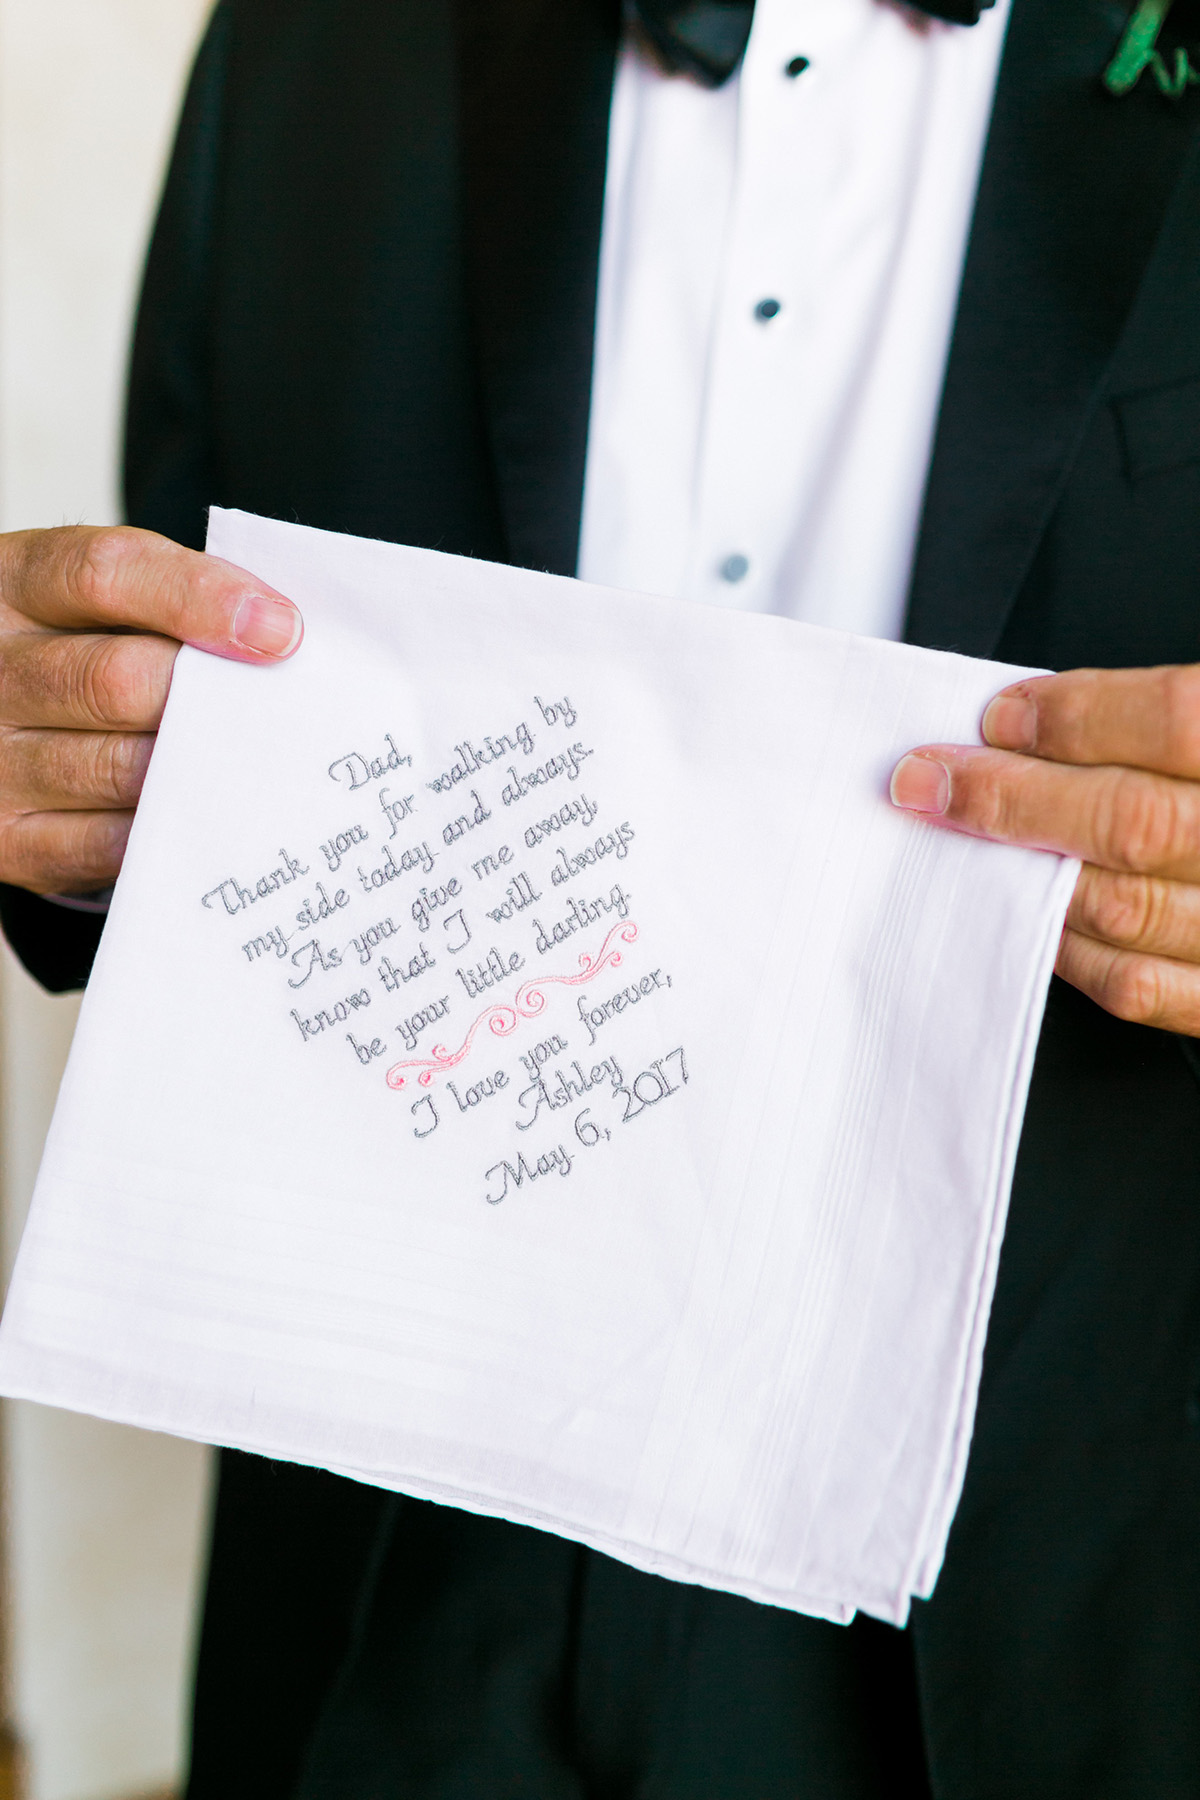 Dad,
Thank you for walking by
my side today and always.
As you give me away,
know that I will always
be your little darling.
I love you forever,
Ashley
May 6, 2017